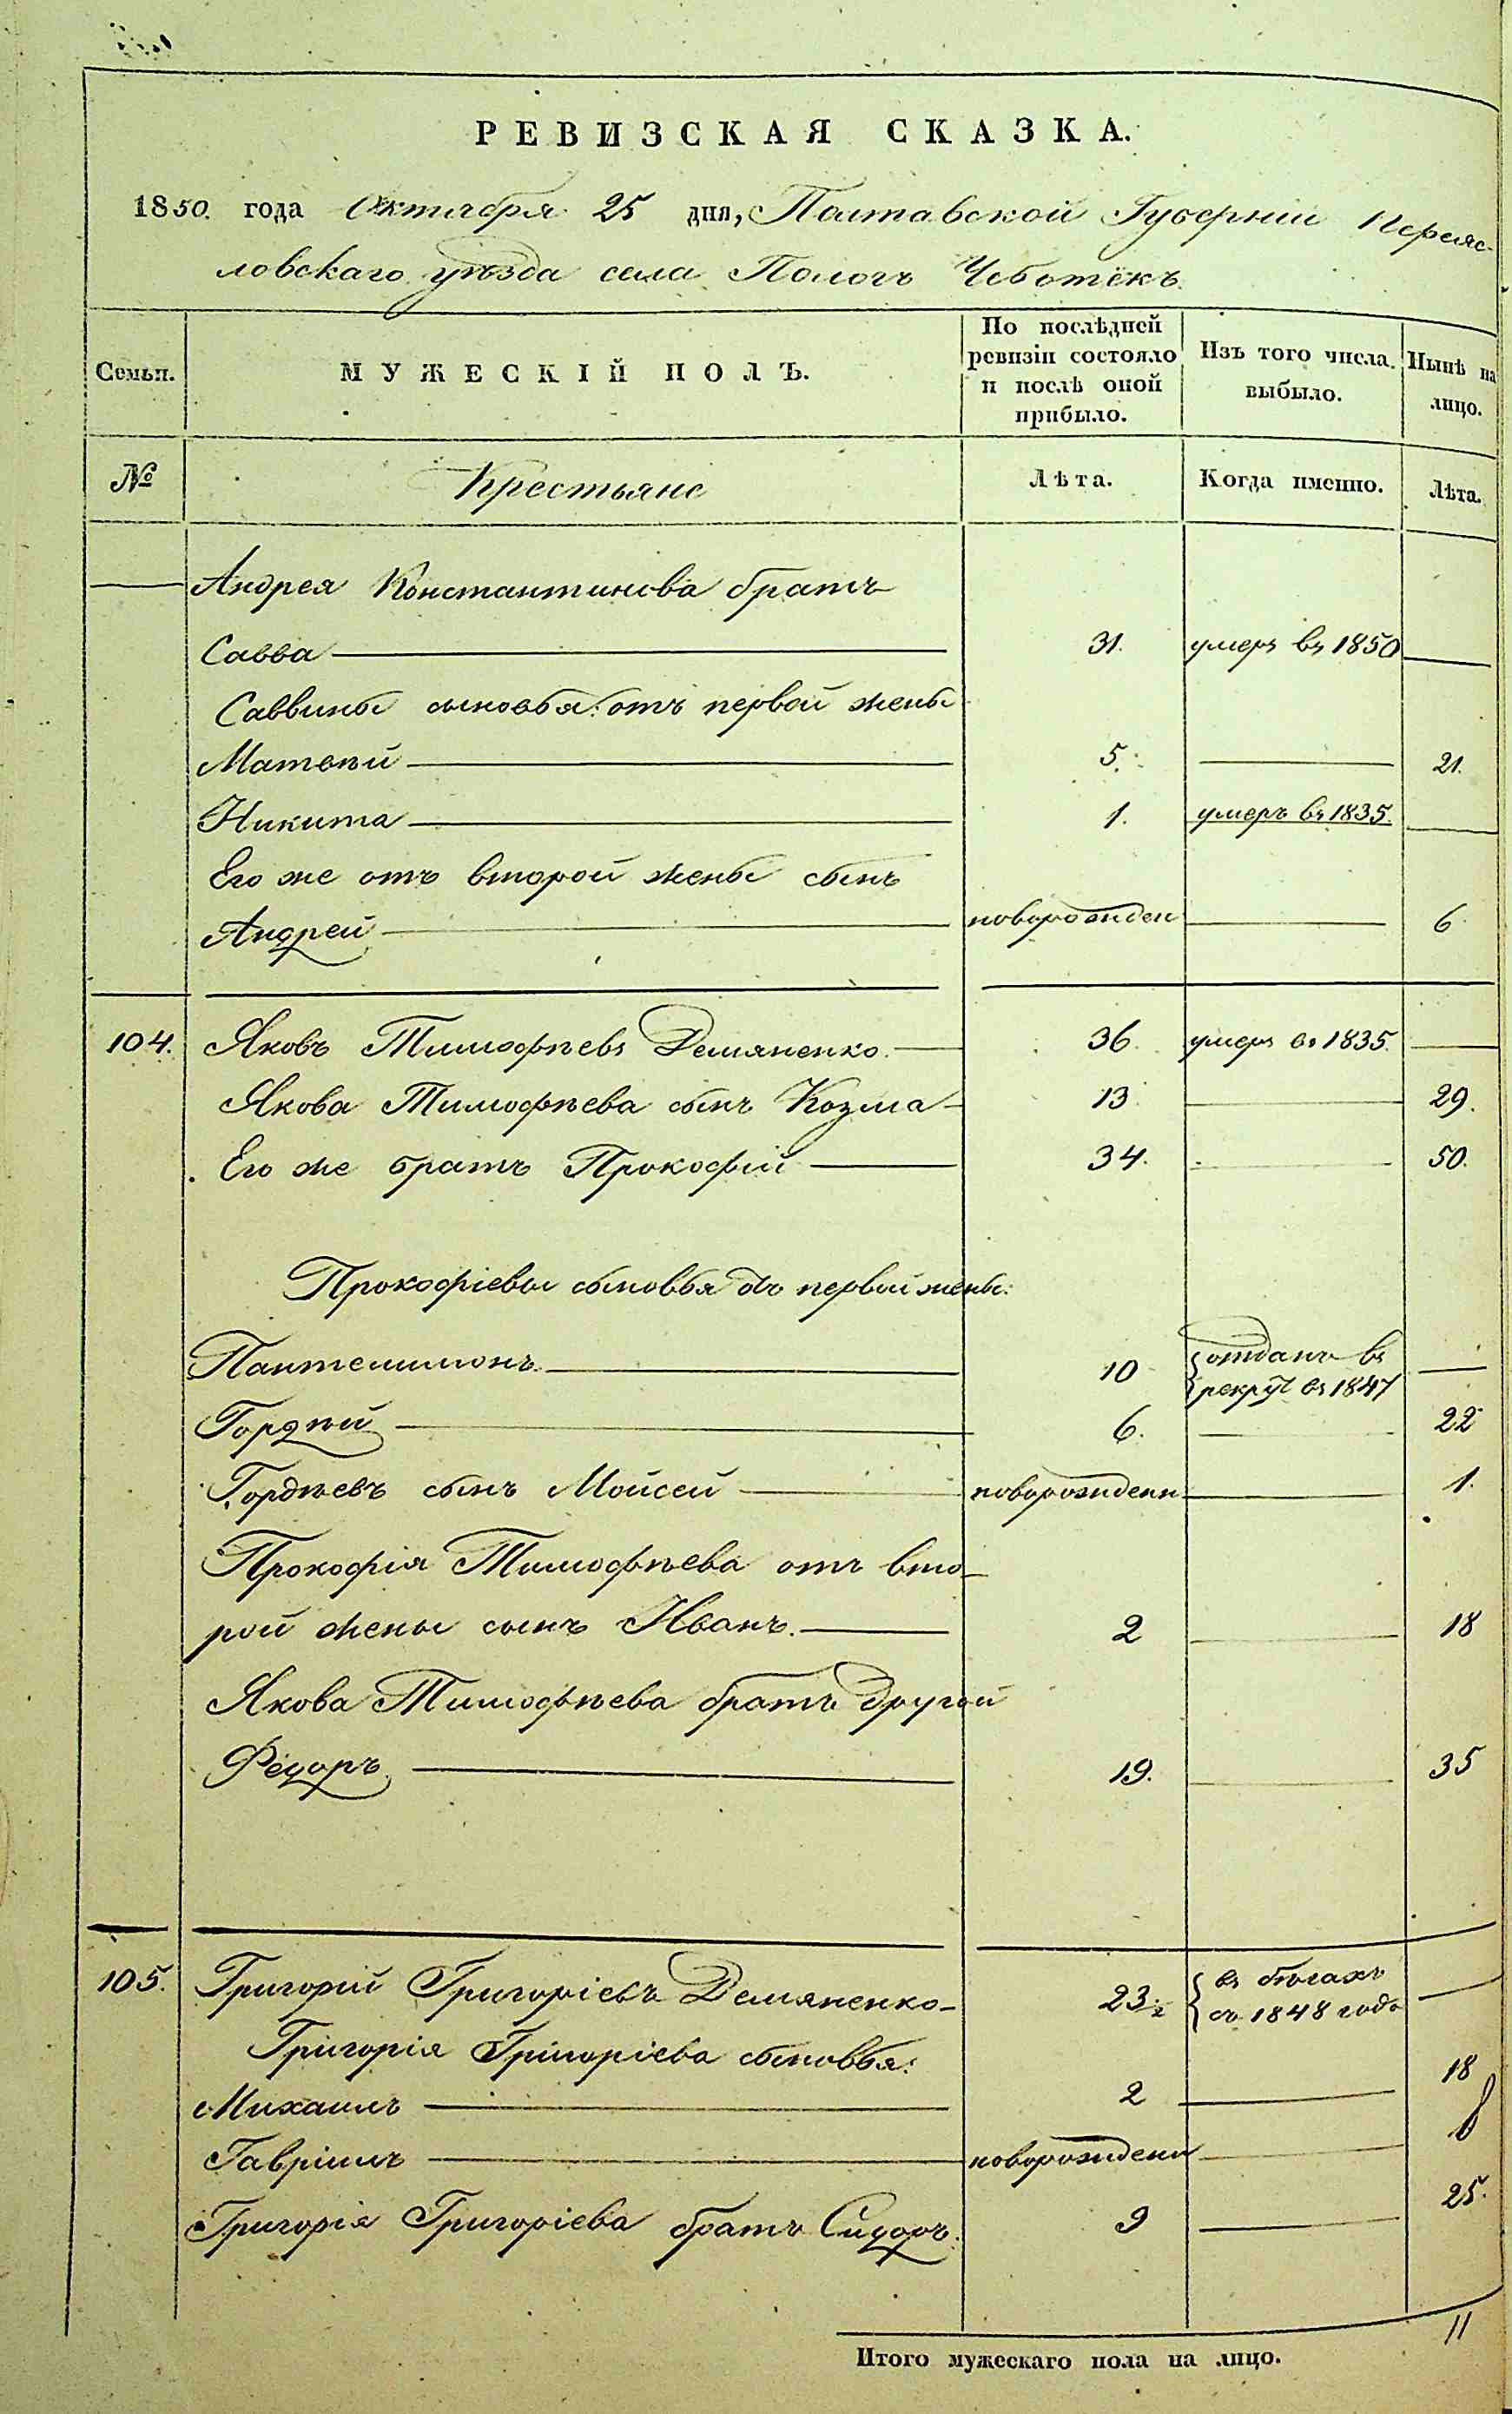 РЕВИЗСКАЯ СКАЗКА.
1850. года Октября 25 дня, Полтавской Губернии Переяс-
ловскаго уѣзда села Пологъ Чоботёкъ.
Семьи. МУЖЕСКІЙ ПОЛЪ. По послѣдней ревизіи состояло и послѣ оной прибыло. Изъ того числа выбыло. Нынѣ на лицо.
№ Крестьяне Лѣта. Когда именно. Лѣта.
Андрея Константинова братъ
Савва 31. умеръ въ 1850
Саввины сыновья: отъ первой жены
Матвѣй 5. 21.
Никита 1. умеръ въ 1835.
Его же отъ второй жены сынъ
Андрей новорожден 6
104. Яковъ Тимофѣевъ Демяненко. 36 умеръ въ 1835.
Якова Тимофѣева сынъ Козма 13 29.
Его же братъ Прокофій 34. 50.
Прокофіевы сыновья отъ первой жены:
Пантелимонъ 10 отданъ въ
рекрут въ 1847
Гордѣй 6. 22
Гордѣевъ сынъ Мойсей новорожденн 1.
Прокофія Тимофѣева отъ вто-
рой жены сынъ Иванъ. 2 18
Якова Тимофѣева братъ другой
Федоръ 19. 35
105. Григорій Григоріевъ Демяненко 23½ въ бѣгахъ
съ 1848 года
Григорія Григоріева сыновья:
Михаилъ 2 18
Гавріилъ новорожденн 8
Григорія Григоріева братъ Сидоръ. 9 25.
Итого мужескаго пола на лицо. 11